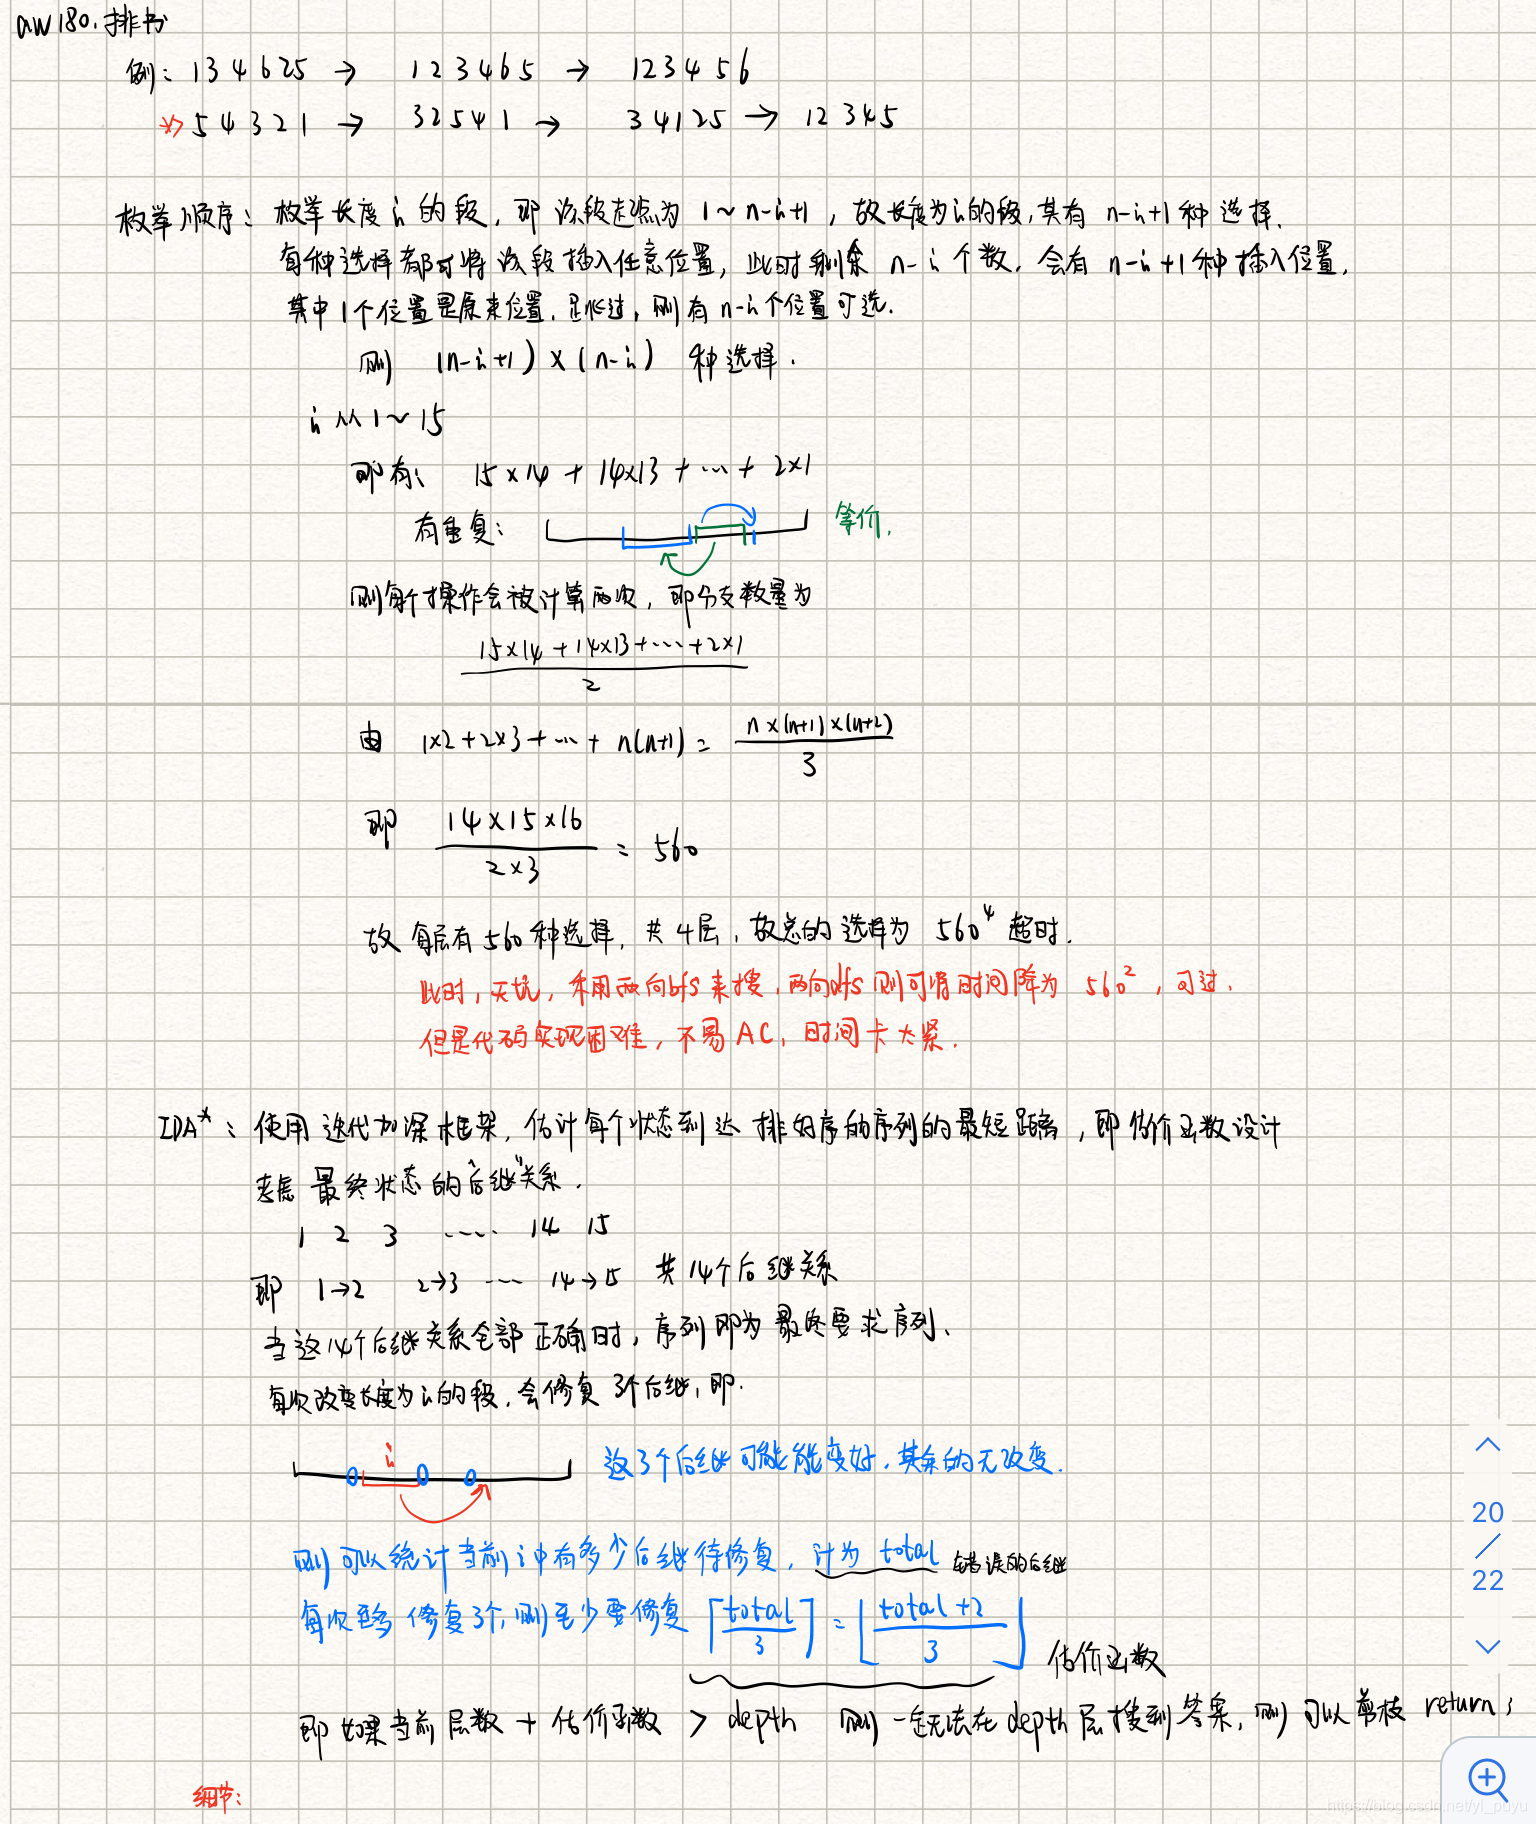 aw 180. 排书
例: 134625 → 123465 → 123456
*> 54321 → 32541 → 34125 → 12345
枚举顺序: 枚举长度 i 的段, 即 该段起点为 1 ~ n-i+1, 故长度为 i 的段, 共有 n-i+1 种选择.
每种选择都可将该段插入任意位置, 此时剩余 n-i 个数, 会有 n-i+1 种插入位置,
其中 1 个位置是原来位置, 跳过, 则有 n-i 个位置可选.
则 (n-i+1) × (n-i) 种选择.
i 从 1 ~ 15
即有: 15×14 + 14×13 + ... + 2×1
有重复: 等价.
则每个操作会被计算两次, 即分支数量为
15×14 + 14×13 + ... + 2×1
2
由 1×2 + 2×3 + ... + n(n+1) = n×(n+1)×(n+2)
3
即 14×15×16
2×3 = 560
故 每层有 560 种选择, 共 4 层, 故总的选择为 560⁴ 超时.
此时, 采用双向bfs来搜, 双向dfs则可将时间降为 560², 可过.
但是代码实现困难, 不易 AC, 时间卡太紧.
IDA*: 使用迭代加深框架, 估计每个状态到达 排好序的序列的最短距离, 即估价函数设计
考虑 最终状态的"后继"关系.
1 2 3 ..... 14 15
即 1→2 2→3 ... 14→15 共 14 个后继关系
当这 14 个后继关系全部正确时, 序列即为最终要求序列、
每次改变长度为 i 的段, 会修复 3个后继, 即.
i
这 3 个后继可能能变好, 其余的无改变.
则可以统计当前 i 中有多少后继待修复, 计为 total 错误的后继
每次至多 修复 3个, 则至少要修复 ⌈total/3⌉ = ⌊total+2/3⌋
估价函数
即 如果当前层数 + 估价函数 > depth 则一定无法在 depth 层搜到答案, 则可以剪枝 return;
细节:
20
/
22
https://blog.csdn.net/yl_puyu